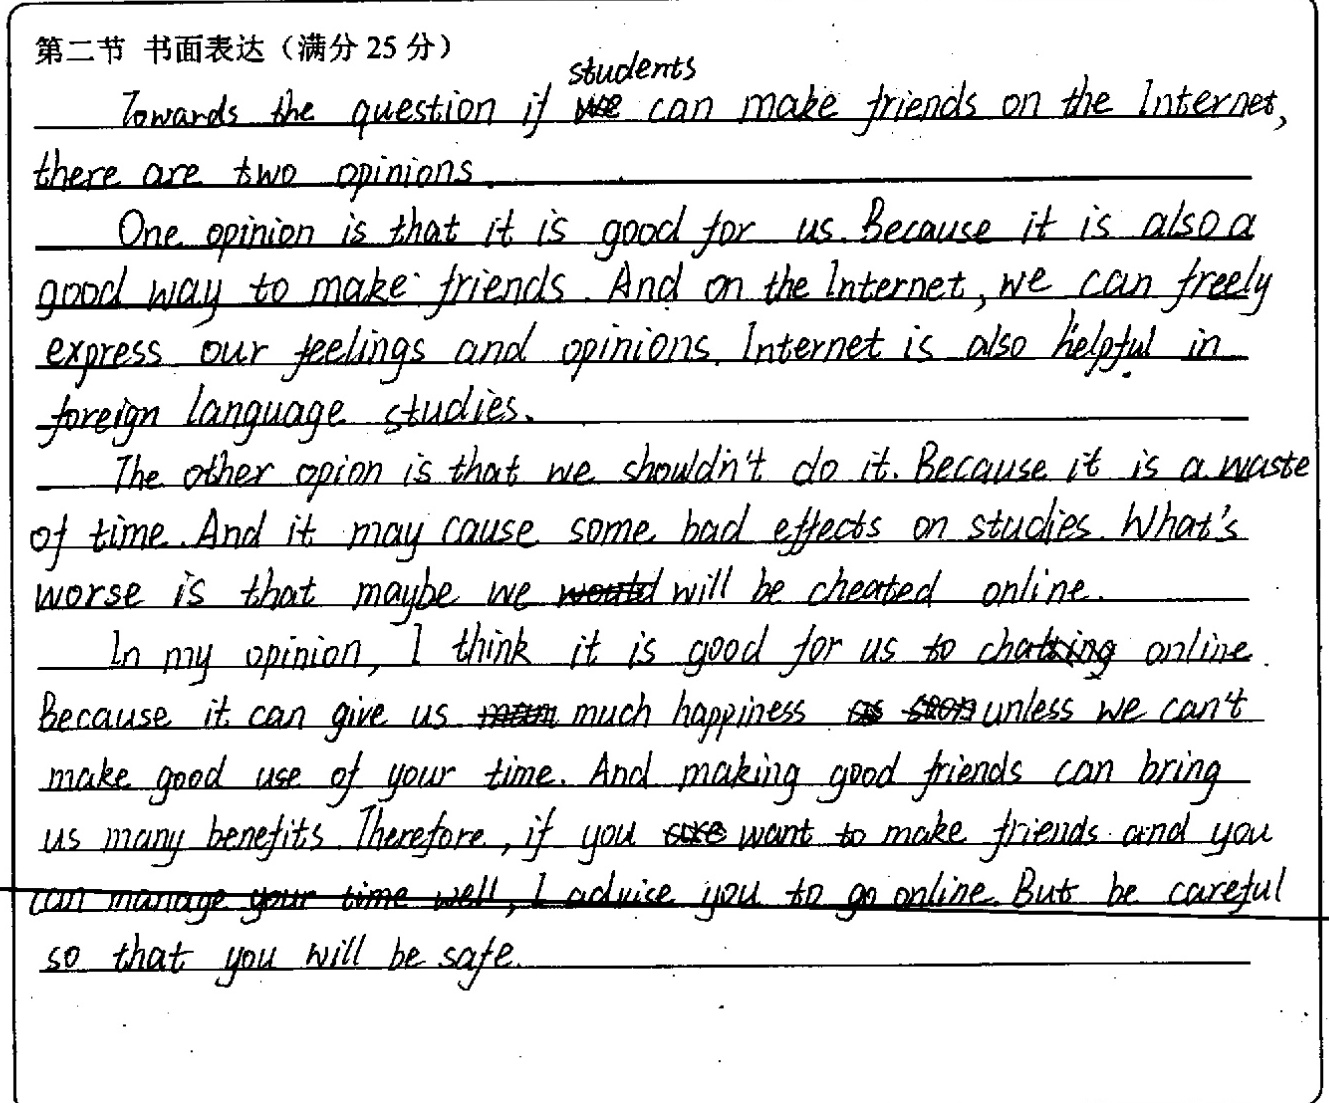 第二节 书面表达（满分 25 分）
students
Towards the question if can make friends on the Internet,
there are two opinions.
One opinion is that it is good for us. Because it is also a
good way to make friends. And on the Internet, we can freely
express our feelings and opinions. Internet is also helpful in
foreign language studies.
The other opion is that we shouldn't do it. Because it is a waste
of time. And it may cause some bad effects on studies. What's
worse is that maybe we will be cheated online.
In my opinion, I think it is good for us to chat online.
Because it can give us much happiness unless we can't
make good use of your time. And making good friends can bring
us many benefits. Therefore, if you want to make friends and you
can manage your time well, I advise you to go online. But be careful
so that you will be safe.